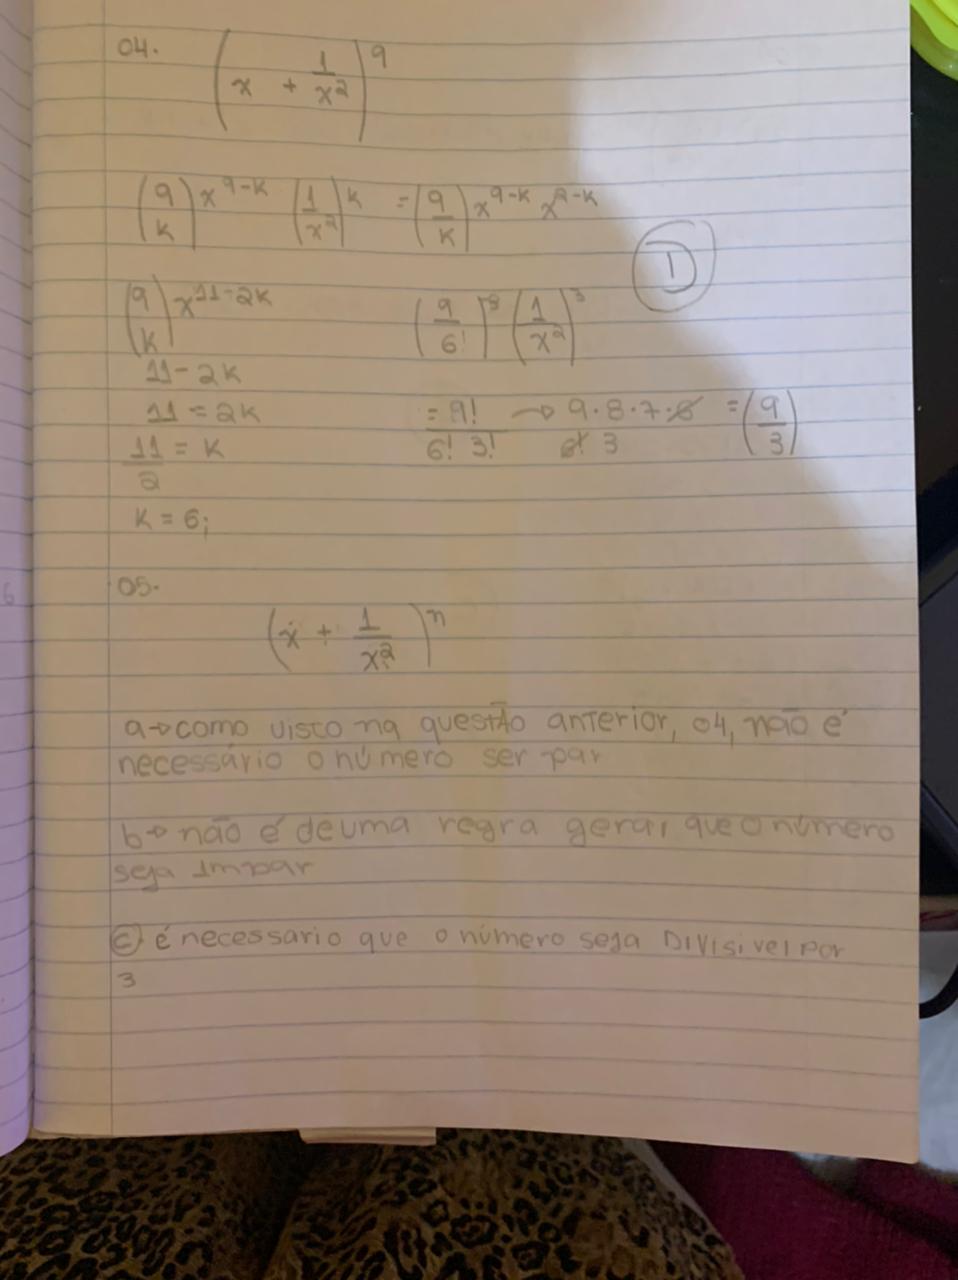 04. (x + 1/x²)⁹
(9/k) x⁹⁻ᵏ (1/x²)ᵏ = (9/k) x⁹⁻ᵏ x²⁻ᵏ
D
(9/k) x¹¹⁻²ᵏ (9/6!)⁸ (1/x²)³
11 - 2k
11 = 2k = 9!/6! 3! → 9.8.7.6/6! 3 = (9/3)
11/2 = k
k = 6;
05.
(x + 1/x²)ⁿ
a→ como visto na questão anterior, 04, não é
necessário o número ser par
b→ não é de uma regra geral que o número
seja Impar
c) é necessario que o número seja Divisivel por
3